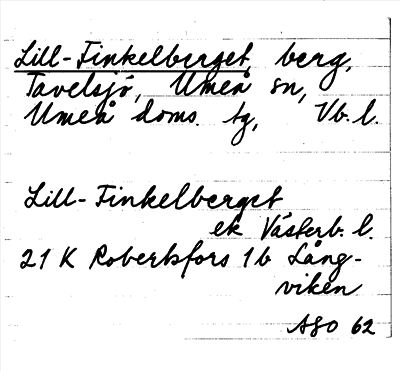 Lill-Finkelberget, berg,
Tavelsjö, Umeå sn,
Umeå doms. tg, Vb. l.
Lill-Finkelberget
ek Västerb. l.
21 K Robertsfors 1b Lång-
viken
ASO 62